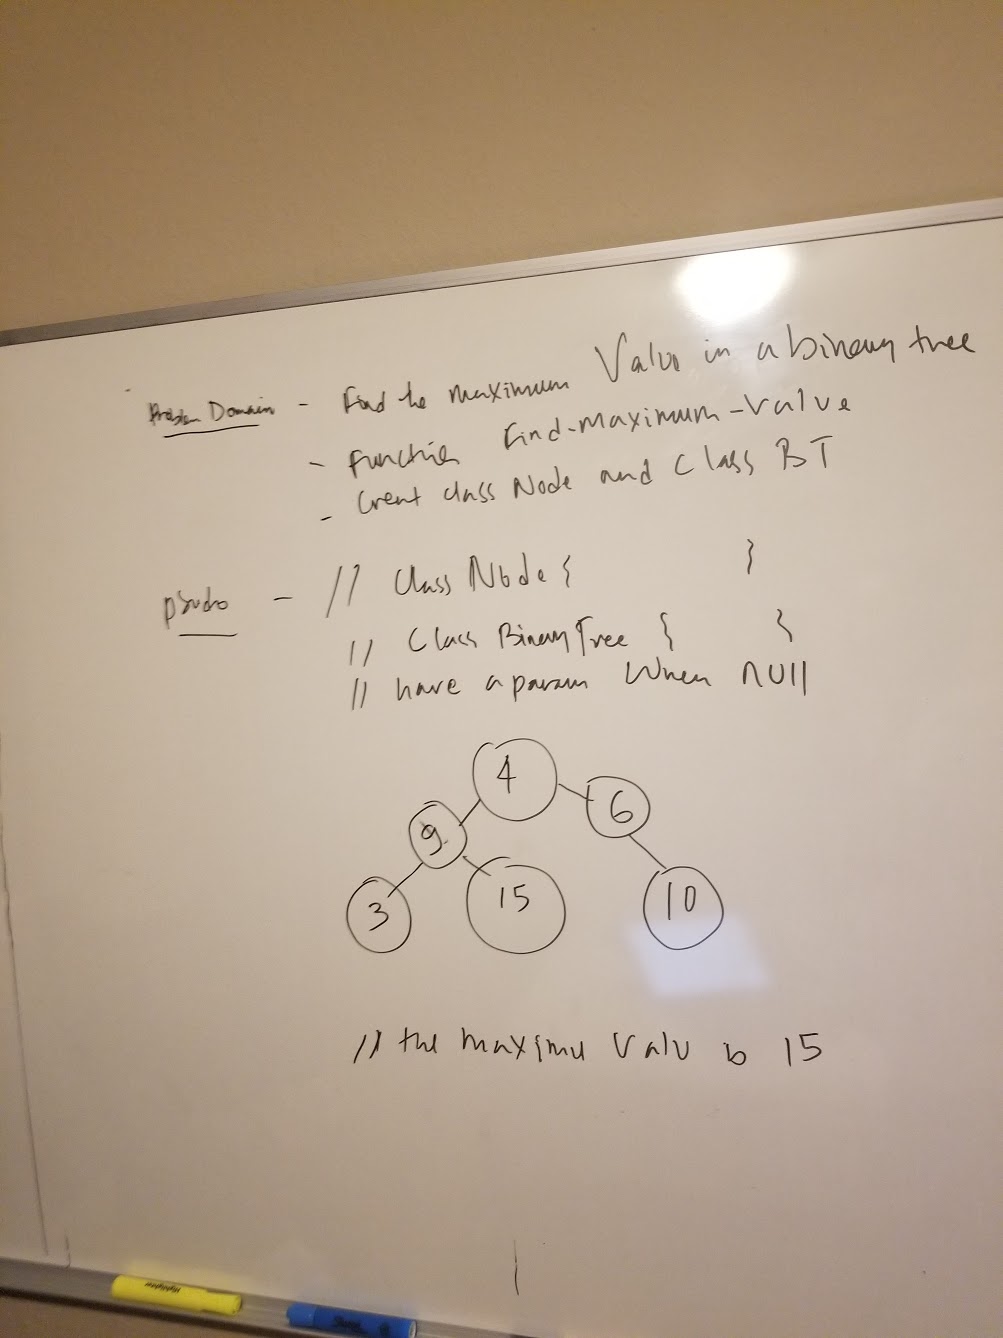 Problem Domain - Find the maximum Value in a binary tree
- function Find-maximum-Value
- Creat class Node and Class BT
psudo - // Class Node { }
// Class BinaryTree { }
// have a param When null
4
9 6
3 15 10
// the maximu Valu is 15
Sharpie